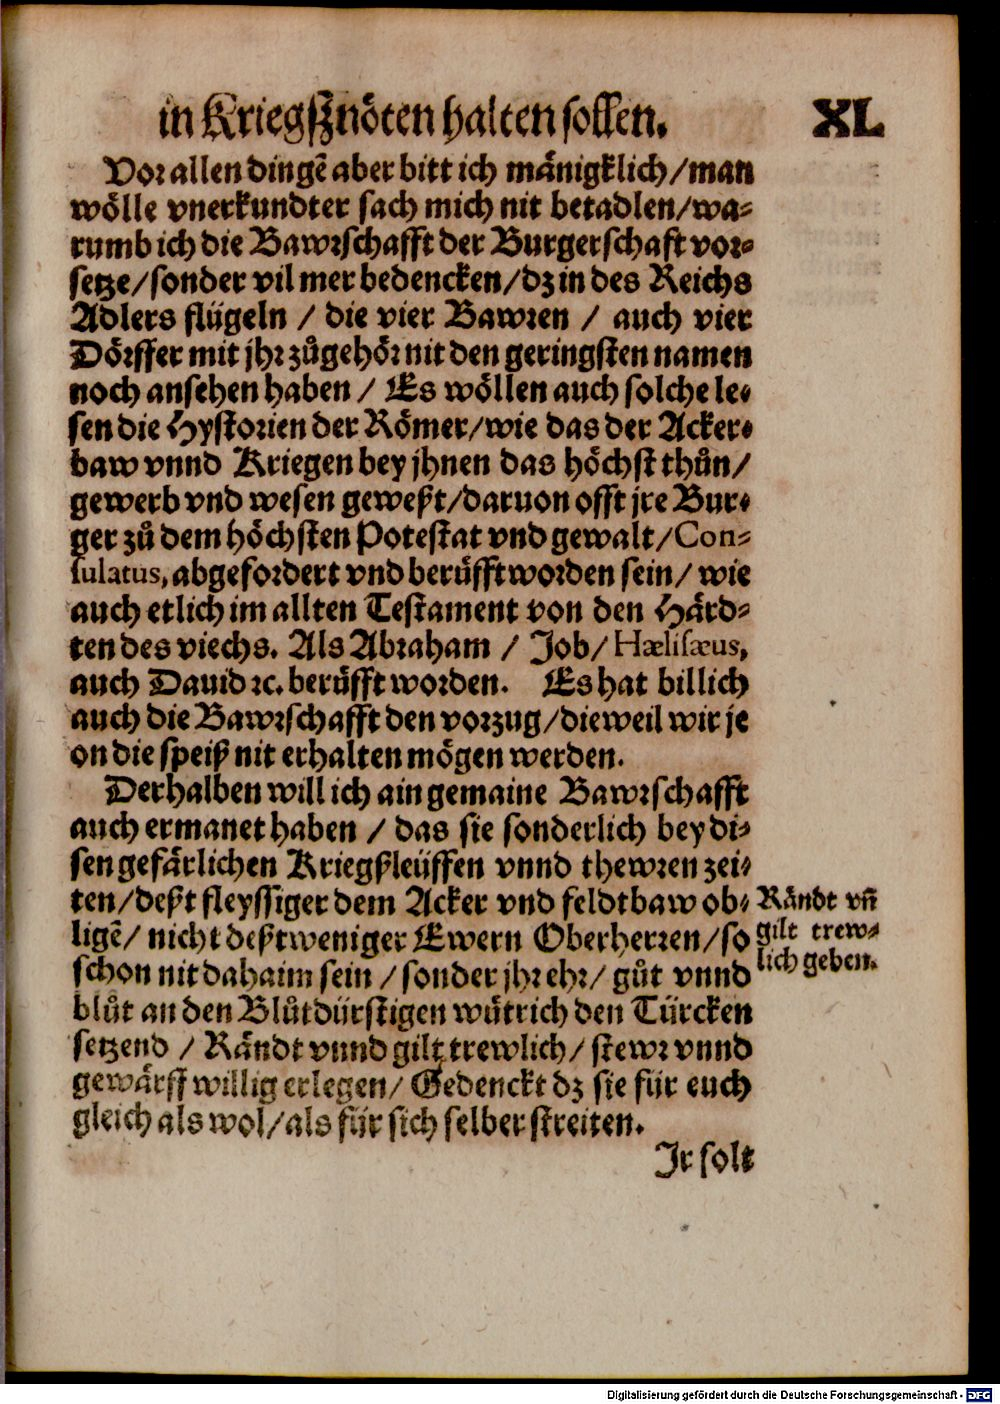 in Kriegſznöten halten ſollen. XL
Vor allen dingẽ aber bitt ich mänigklich/man
wölle vnerkundter ſach mich nit betadlen/wa⸗
rumb ich die Bawrſchafft der Burgerſchaft vor⸗
ſetze/ſonder vil mer bedencken/dz in des Reichs
Adlers flügeln / die vier Bawren / auch vier
Dörffer mit jhr zůgehör nit den geringſten namen
noch anſehen haben / Es wöllen auch ſolche le⸗
ſen die Hyſtorien der Römer/wie das der Acker⸗
baw vnnd Kriegen bey jhnen das höchſt thůn/
gewerb vnd weſen geweßt/daruon offt jre Bur⸗
ger zů dem höchſten Poteſtat vnd gewalt/Con⸗
ſulatus, abgefordert vnd berüfft worden ſein/ wie
auch etlich im allten Teſtament von den Härd⸗
ten des viechs. Als Abraham / Job/ Hæliſæus,
auch Dauid ꝛc. berüfft worden. Es hat billich
auch die Bawrſchafft den vorzug/dieweil wir je
on die ſpeiß nit erhalten mögen werden.
Derhalben will ich ain gemaine Bawrſchafft
auch ermanet haben / das ſie ſonderlich bey di⸗
ſen gefärlichen Kriegßleüffen vnnd thewren zei⸗
ten/deßt fleyſſiger dem Acker vnd feldtbaw ob⸗
ligẽ/ nicht deßtweniger Ewern Oberherren/ſo
ſchon nit dahaim ſein /ſonder jhr ehr/ gůt vnnd
blůt an den Blůtdürſtigen wütrich den Türcken
ſetzend / Rändt vnnd gilt trewlich/ ſtewr vnnd
gewärff willig erlegen/ Gedenckt dz ſie für euch
gleich als wol/als für ſich ſelber ſtreiten.
Rändt vñ
gilt trew⸗
lich geben.
Jr ſolt
Digitalisierung gefördert durch die Deutsche Forschungsgemeinschaft - DFG